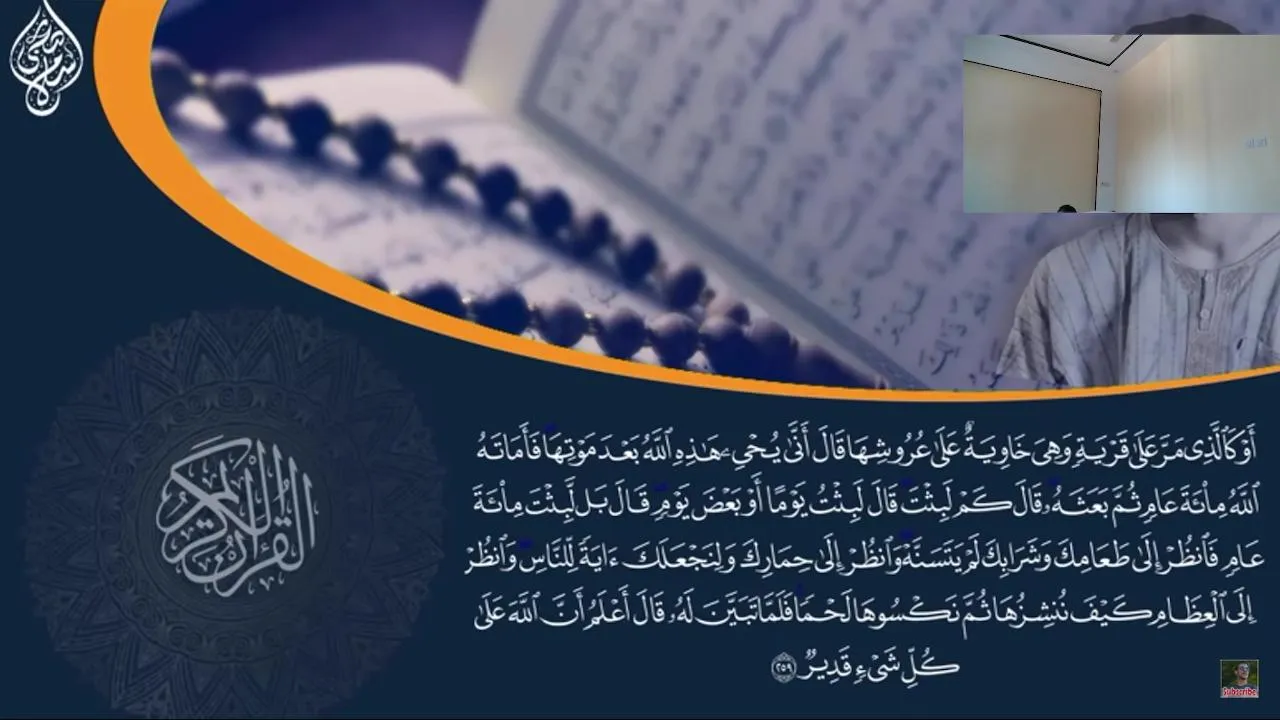 أَوْ كَٱلَّذِى مَرَّ عَلَىٰ قَرْيَةٍ وَهِىَ خَاوِيَةٌ عَلَىٰ عُرُوشِهَا قَالَ أَنَّىٰ يُحْىِۦ هَٰذِهِ ٱللَّهُ بَعْدَ مَوْتِهَا فَأَمَاتَهُ
ٱللَّهُ مِا۟ئَةَ عَامٍ ثُمَّ بَعَثَهُۥ قَالَ كَمْ لَبِثْتَ قَالَ لَبِثْتُ يَوْمًا أَوْ بَعْضَ يَوْمٍ قَالَ بَل لَّبِثْتَ مِا۟ئَةَ
عَامٍ فَٱنظُرْ إِلَىٰ طَعَامِكَ وَشَرَابِكَ لَمْ يَتَسَنَّهْ وَٱنظُرْ إِلَىٰ حِمَارِكَ وَلِنَجْعَلَكَ ءَايَةً لِّلنَّاسِ وَٱنظُرْ
إِلَى ٱلْعِظَامِ كَيْفَ نُنشِزُهَا ثُمَّ نَكْسُوهَا لَحْمًا فَلَمَّا تَبَيَّنَ لَهُۥ قَالَ أَعْلَمُ أَنَّ ٱللَّهَ عَلَىٰ
كُلِّ شَىْءٍ قَدِيرٌ ٢٥٩
القرآن الكريم
Subscribe